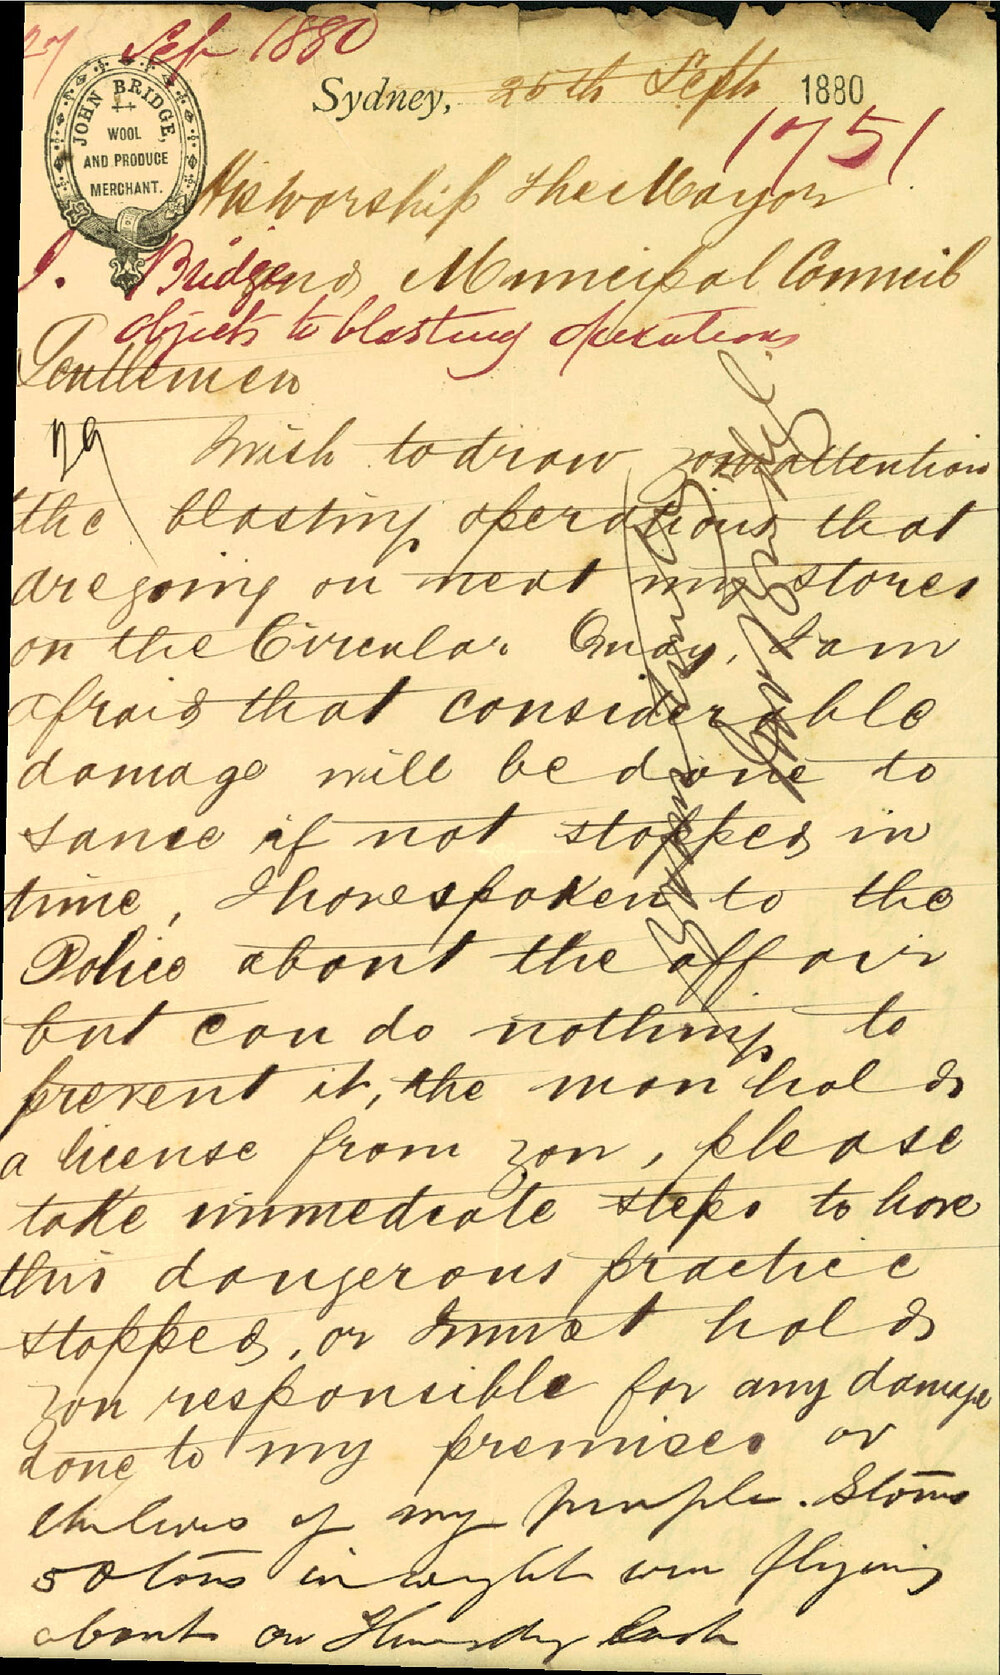 27 Sep 1880
JOHN BRIDGE,
WOOL
AND PRODUCE
MERCHANT.
Sydney, 25th Septh 1880
1751
His Worship The Mayor
J. Bridge
and Municipal Council
objects to blasting operations
Gentlemen
I wish to draw your attention
the blasting operations that
are going on next my stores
on the Circular Quay, I am
afraid that considerable
damage will be done to
same if not stopped in
time, I have spoken to the
Police about the affair
but can do nothing to
prevent it, the man holds
a license from you, please
take immediate steps to have
this dangerous practice
stopped, or I must hold
you responsible for any damage
done to my premises or
the lives of my people. Stones
50 tons in weight were flying
about on Thursday last